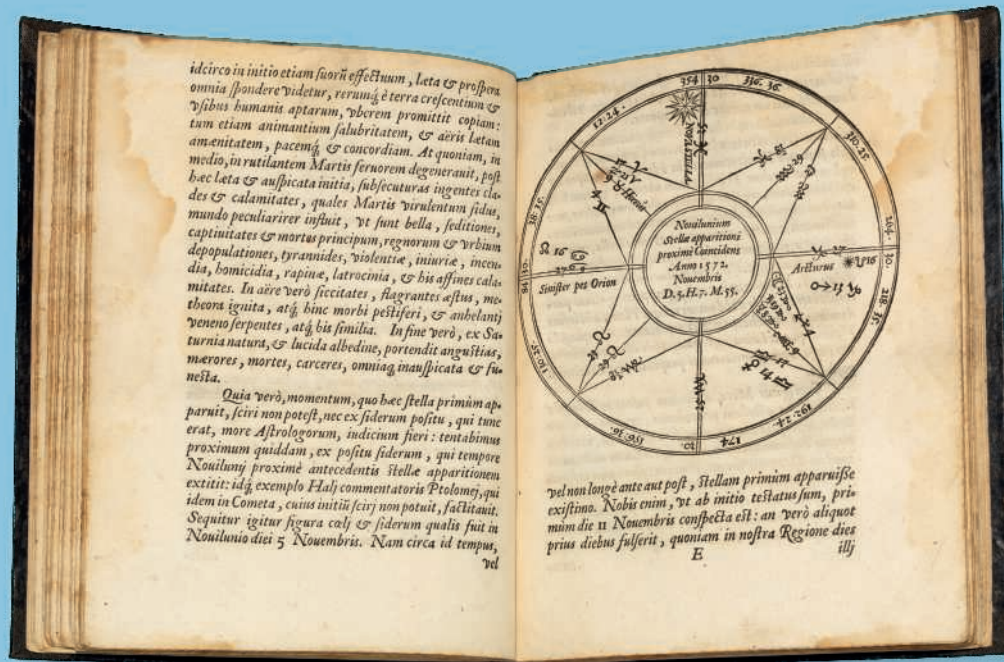 idcirco in initio etiam suorũ effectuum, læta & prospera
omnia spondere videtur, rerumq́ è terra crescentium &
vsibus humanis aptarum, vberem promittit copiam:
tum etiam animantium salubritatem, & aëris lætam
amænitatem, pacemq́ & concordiam. At quoniam, in
medio, in rutilantem Martis feruorem degenerauit, post
hæc læta & auspicata initia, subsecuturas ingentes cla-
des & calamitates, quales Martis virulentum sidus,
mundo peculiarirer influit, vt sunt bella, seditiones,
captiuitates & mortes principum, regnorum & vrbium
depopulationes, tyrannides, violentiæ, iniuriæ, incen-
dia, homicidia, rapinæ, latrocinia, & his affines cala-
mitates. In aëre verò siccitates, flagrantes æstus, me-
theora ignita, atq́ hinc morbi pestiferi, & anhelantj
veneno serpentes, atq́ his similia. In fine verò, ex Sa-
turnia natura, & lucida albedine, portendit angustias,
mærores, mortes, carceres, omniaq́ inauspicata & fu-
nesta.
Quia verò, momentum, quo hæc stella primùm ap-
paruit, sciri non potest, nec ex siderum positu, qui tunc
erat, more Astrologorum, iudicium fieri: tentabimus
proximum quiddam, ex positu siderum, qui tempore
Nouilunij proximè antecedentis stellæ apparitionem
extitit: idq́ exemplo Halj commentatoris Ptolomej, qui
idem in Cometa, cuius initiũ scirj non potuit, factitauit.
Sequitur igitur figura cœlj & siderum qualis fuit in
Nouilunio diei 5 Nouembris. Nam circa id tempus,
vel
354 30
336. 36.
310. 35.
264.
30.
218. 35.
192. 24.
174
30.
156. 36.
130. 35.
84 30.
38. 35.
12. 24.
NOVA STELLA
Sinister pes Orion
Arcturus
Nouilunium
Stellæ apparitioni
proximè Coincidens
Anno 1572.
Nouembris
D. 5. H. 7. M. 55.
vel non longè ante aut post, stellam primùm apparuisse
existimo. Nobis enim, vt ab initio testatus sum, pri-
mùm die 11 Nouembris conspecta est: an verò aliquot
prius diebus fulserit, quoniam in nostra Regione dies
E
illj